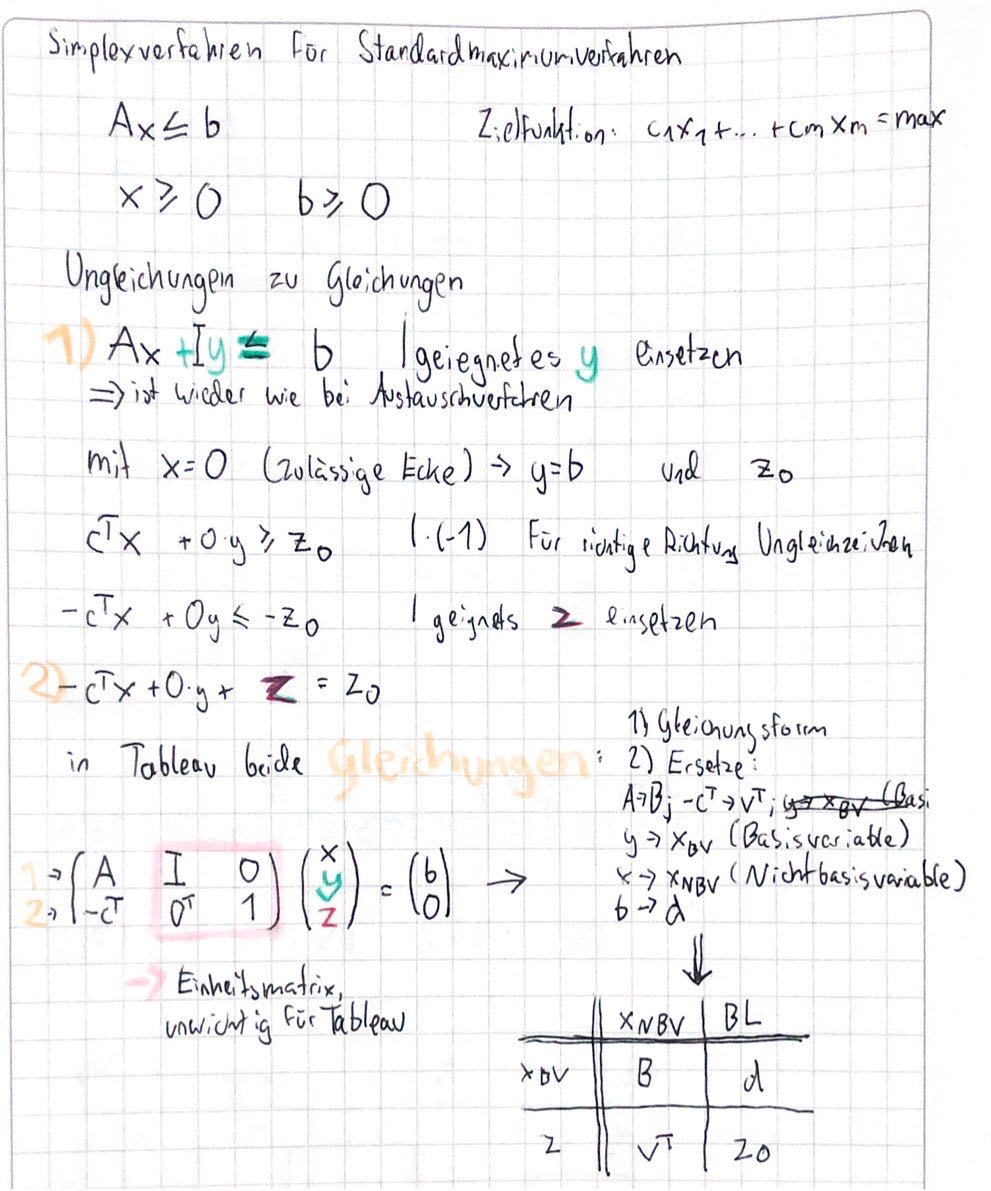 Simplexverfahren für Standardmaximumverfahren
Ax ≤ b Zielfunktion: c₁x₁+...+cmxm = max
x ≥ 0 b ≥ 0
Ungleichungen zu Gleichungen
1) Ax +Iy = b | geiegnetes y einsetzen
=> ist wieder wie bei Austauschverfahren
mit x=0 (zulässige Ecke) → y=b und z₀
cᵀx + 0·y ≥ z₀ |·(-1) Für richtige Richtung Ungleichzeichen
-cᵀx + 0y ≤ -z₀ | geignets z einsetzen
2) -cᵀx + 0·y + z = z₀
in Tableau beide Gleichungen:
1) Gleichungsform
2) Ersetze:
A→B; -cᵀ→vᵀ; y→ x_BV (Basi
y → x_BV (Basisvariable)
x → x_NBV (Nichtbasisvariable)
b → d
1→ (A I 0) (x) = (b) →
2→ (-cᵀ 0ᵀ 1) (y) (0)
(z)
→ Einheitsmatrix,
unwichtig für Tableau
x_NBV | BL
x_BV | B | d
z | vᵀ | z₀